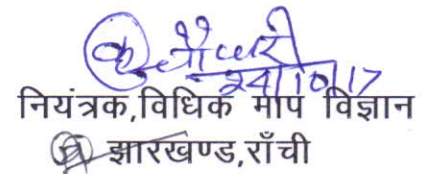 24/10/17
नियंत्रक,विधिक माप विज्ञान
झारखण्ड,राँची